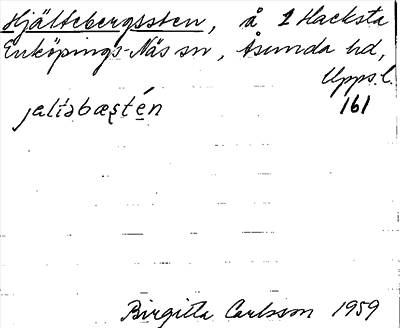 Hjältebergssten, å 1 Hacksta
Enköpings-Näs sn, Åsunda hd,
Upps. l.
jaltəbæsten 161
Birgitta Carlsson 1959